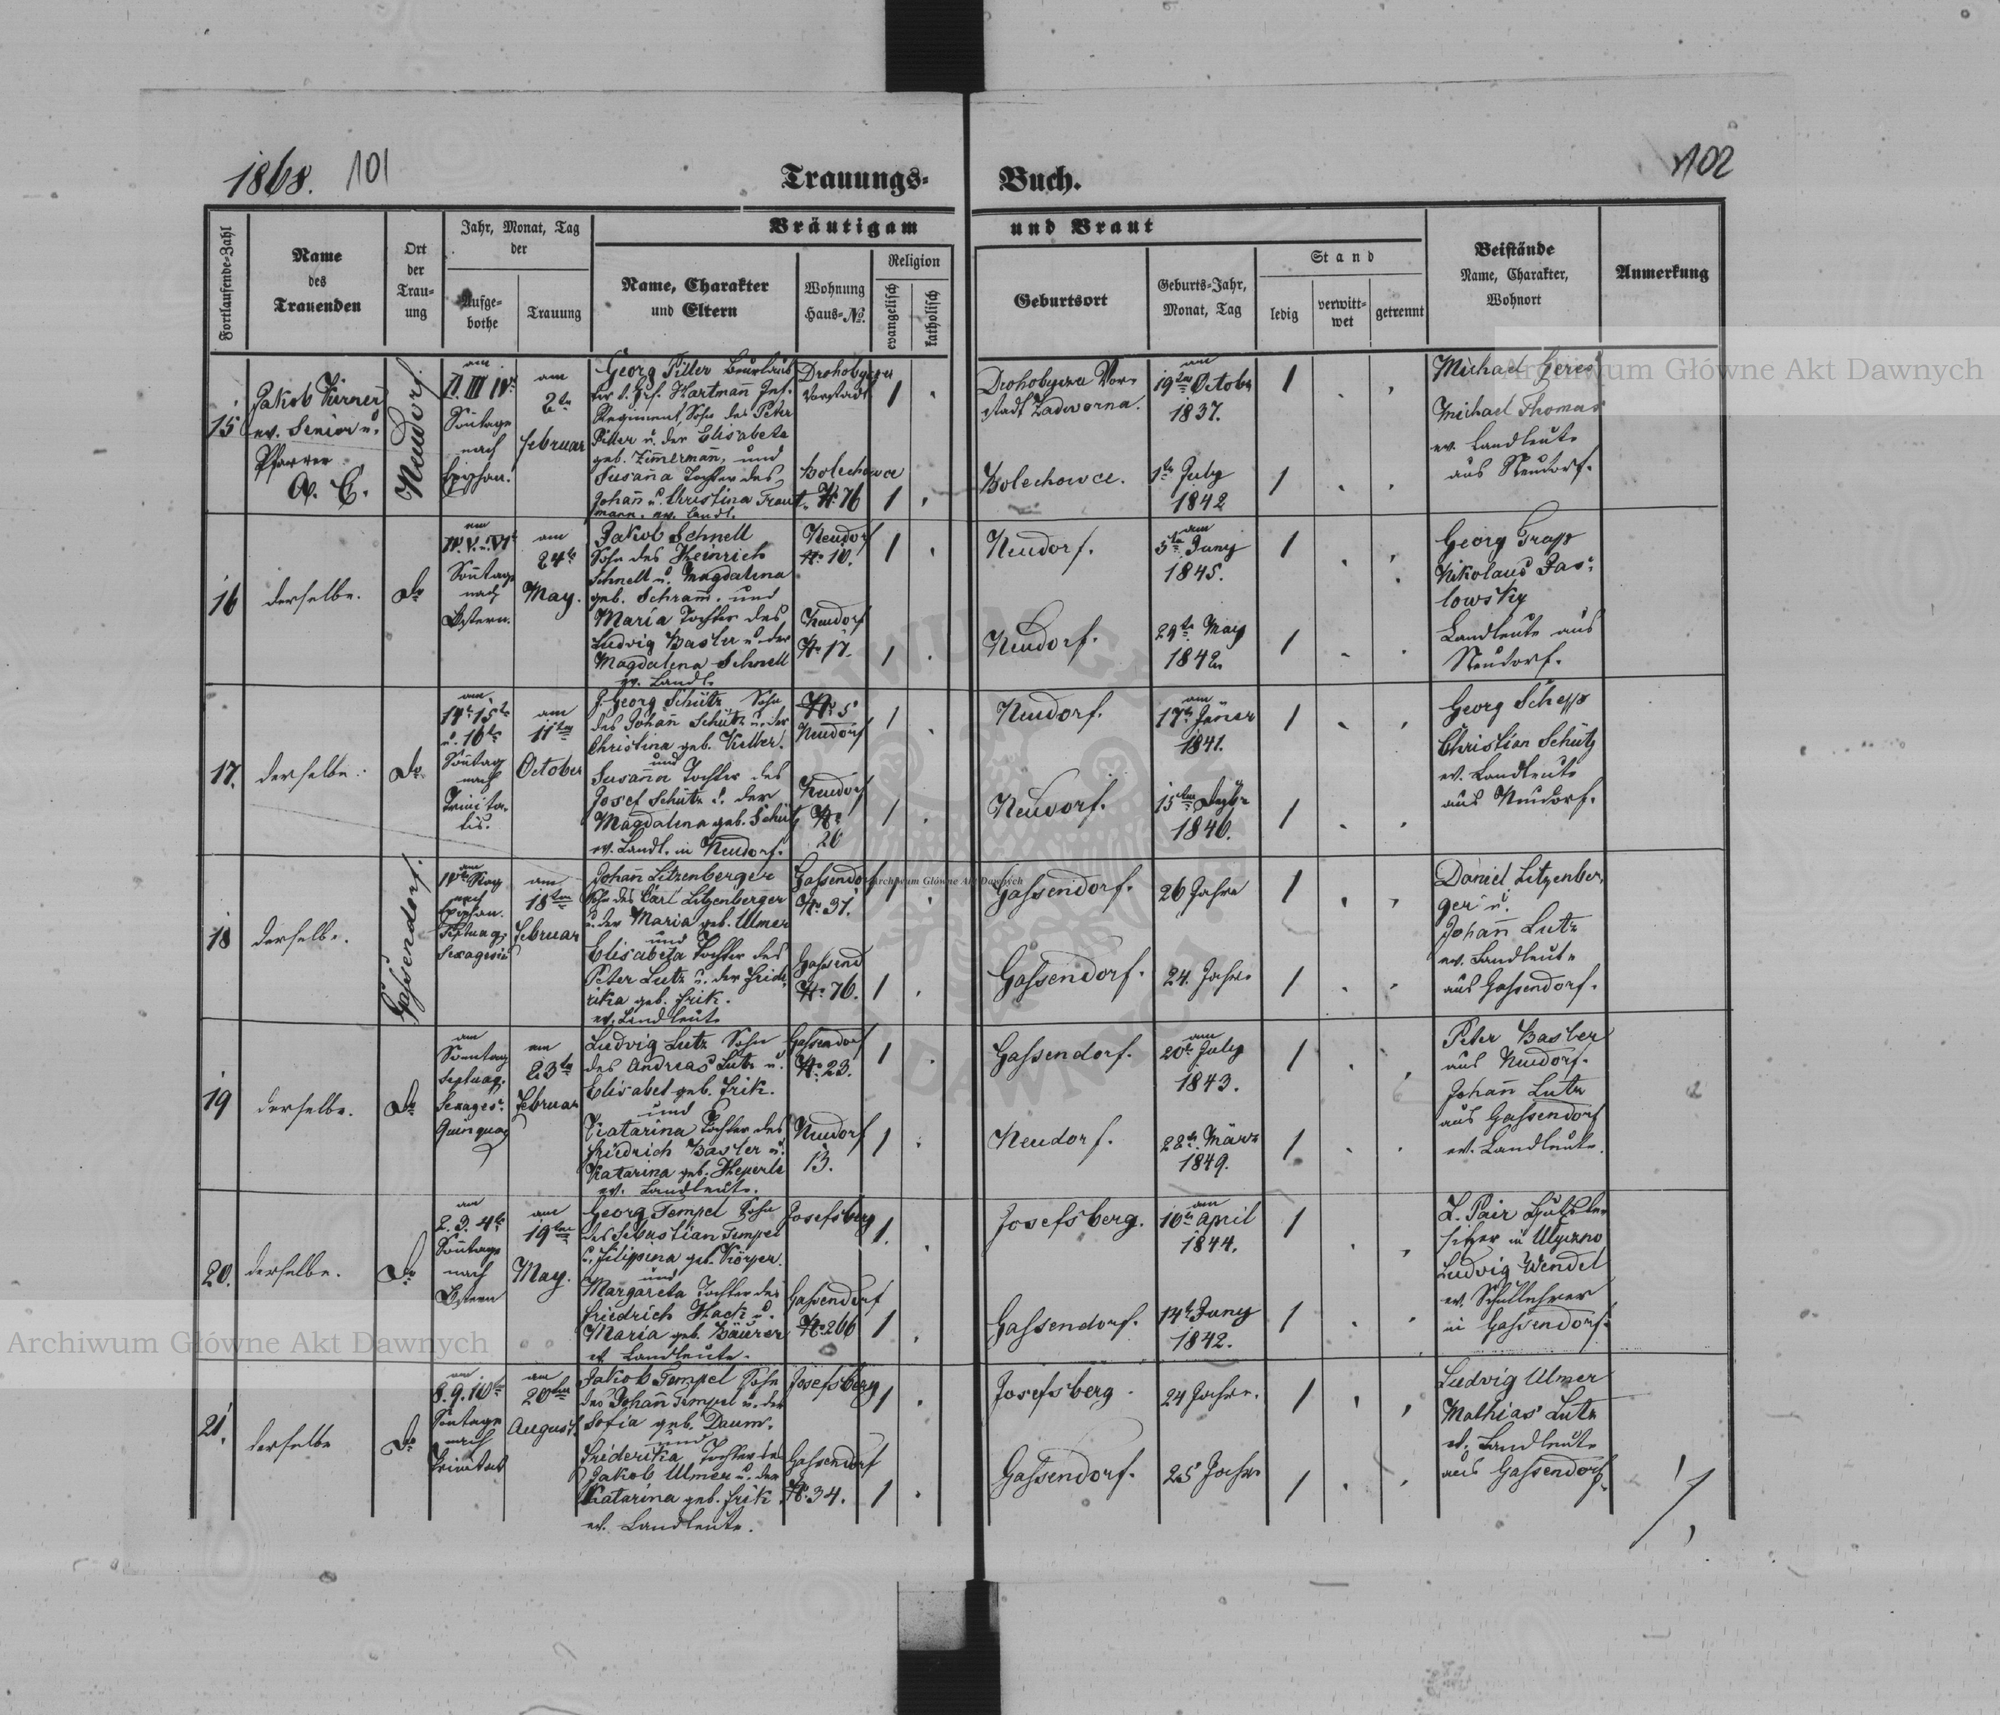 1868. 101
102
Trauungs- Buch.
Fortlaufende-Zahl
Name
des
Trauenden
Ort
der
Trau-
ung
Jahr, Monat, Tag
der
Aufge-
bothe
Trauung
Bräutigam und Braut
Name, Charakter
und Eltern
Wohnung
Haus-No.
Religion
evangelisch
katholisch
Geburtsort
Geburts-Jahr,
Monat, Tag
Stand
ledig
verwitt-
wet
getrennt
Beistände
Name, Charakter,
Wohnort
Anmerkung
15
Jakob
ev. Senior u.
Pfarrer
A. C.
Neudorf.
am
II III IV
Sonntage
nach
Epiphan.
am
2te
Februar
Georg Piller
Hartmañ Inf.
Regiment, Sohn des Peter
Piller u. der Elisabeta
geb. Zim̃ermañ, und
Susaña Tochter des
Johañ u. Christina Traut
mann. ev. Landl.
Drohobycz
Vorstadt
1
Bolechowce
No. 76
1
Drohobycz Vor-
stadt Zadworna.
am
19ten October
1837.
1
Bolechowce.
1te July
1842
1
Michael
Michael Thomas
ev. Landleute
aus Neudorf.
16
derselbe.
do
am
IV. V. u. VI
Sontage
nach
Ostern.
am
24te
May.
Jakob Schnell
Sohn des Heinrich
Schnell u. Magdalena
geb. Schram̃. und
Maria Tochter des
Ludwig Basler u. der
Magdalena Schnell
ev. Landl.
Neudorf
No. 10.
1
Neudorf
No. 17.
1
Neudorf.
am
5te Juny
1845.
1
Neudorf.
29te May
1842
1
Georg Trapp
Nikolaus Pas-
lowsky
Landleute aus
Neudorf.
17.
derselbe.
do.
am
14te 15te
u. 16te
Soñtag
nach
Trinita-
tis.
am
11ten
October
J. Georg Schütz Sohn
des Johañ Schütz u. der
Christina geb. Kulber.
und
Susaña Tochter des
Josef Schütz u. der
Magdalena geb. Schütz
ev. Landl. in Neudorf.
No. 5
Neudorf
1
Neudorf
No
20
1
Neudorf.
am
17te Jäner
1841.
1
Neudorf.
15ten
1840.
1
Georg Schepp
Christian Schütz
ev. Landleute
aus Neudorf.
18
derselbe.
Gassendorf.
am
nach
Epiphan.
Septuag.
Sexagesim
am
18ten
Februar
Johañ Litzenberger
Sohn des Carl Litzenberger
u. der Maria geb. Ulmer
und
Elisabeta Tochter des
Peter Lutz u. der Fride-
rika geb. Frik.
ev. Landleute
Gassendorf
No. 31.
1
Gassend
No. 76.
1
Gassendorf.
26 Jahre
1
Gassendorf.
24. Jahre
1
Daniel Litzenber-
ger u.
Johañ Lutz
ev. Landleute
aus Gassendorf.
19
derselbe.
do
am
Sonntag
Septuag.
Sexages.
Quinquag
am
23te
Februar
Ludwig Lutz Sohn
des Andreas Lutz u.
Elisabet geb. Frik.
und
Katarina Tochter des
Friedrich Basler u.
Katarina geb. Heperle
ev. Landleute.
Gassendorf
No. 23.
1
Neudorf
13.
1
Gassendorf.
am
20te July
1843.
1
Neudorf.
22te März
1849.
1
Peter Basler
aus Neudorf.
Johañ Lutz
aus Gassendorf
ev. Landleute.
20.
derselbe.
do
am
2. 3. 4te
Soñtage
nach
Ostern
am
19ten
May.
Georg Tempel Sohn
des Sebastian Tempel
u. Filippina geb. Körper.
und
Margareta Tochter des
Friedrich Hack u.
Maria geb. Bäurer
ev. Landleute.
Josefsberg
1.
Gassendorf
No. 266
1
Josefsberg.
am
16te April
1844.
1
Gassendorf.
14te Juny
1842.
1
L. Pair Gutsbe-
sitzer in Ulyczno
Ludwig Wendel
ev. Schullehrer
in Gassendorf.
21.
derselbe
do
am
8. 9. 10te
Sontage
nach
Trinitat
am
20ten
August.
Jakob Tempel Sohn
des Johañ Tempel u. der
Sofia geb. Daum.
und
Friderika Tochter des
Jakob Ulmer u. der
Katarina geb. Frik
ev. Landleute.
Josefsberg
1
Gassendorf
No. 34.
1
Josefsberg.
24 Jahre.
1
Gassendorf.
25 Jahre
1
Ludwig Ulmer
Mathias Lutz
ev. Landleute
aus Gassendorf.
Archiwum Główne Akt Dawnych
Archiwum Główne Akt Dawnych
Archiwum Główne Akt Dawnych